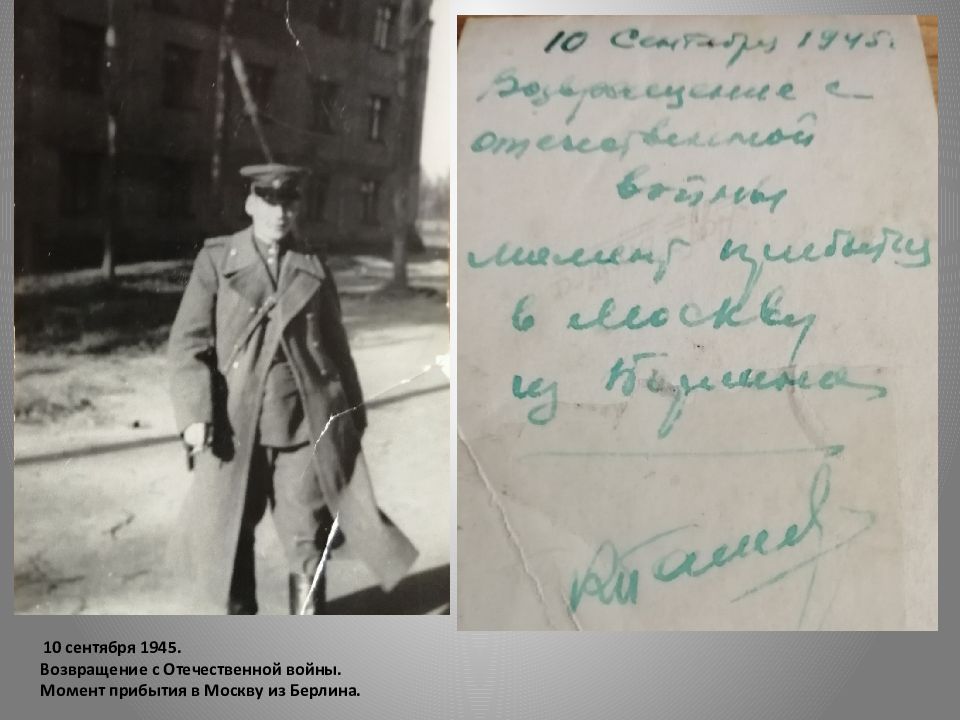 10 Сентября 1945г.
Возвращение с
отечественной
войны
момент прибытия
в Москву
из Берлина
10 сентября 1945.
Возвращение с Отечественной войны.
Момент прибытия в Москву из Берлина.